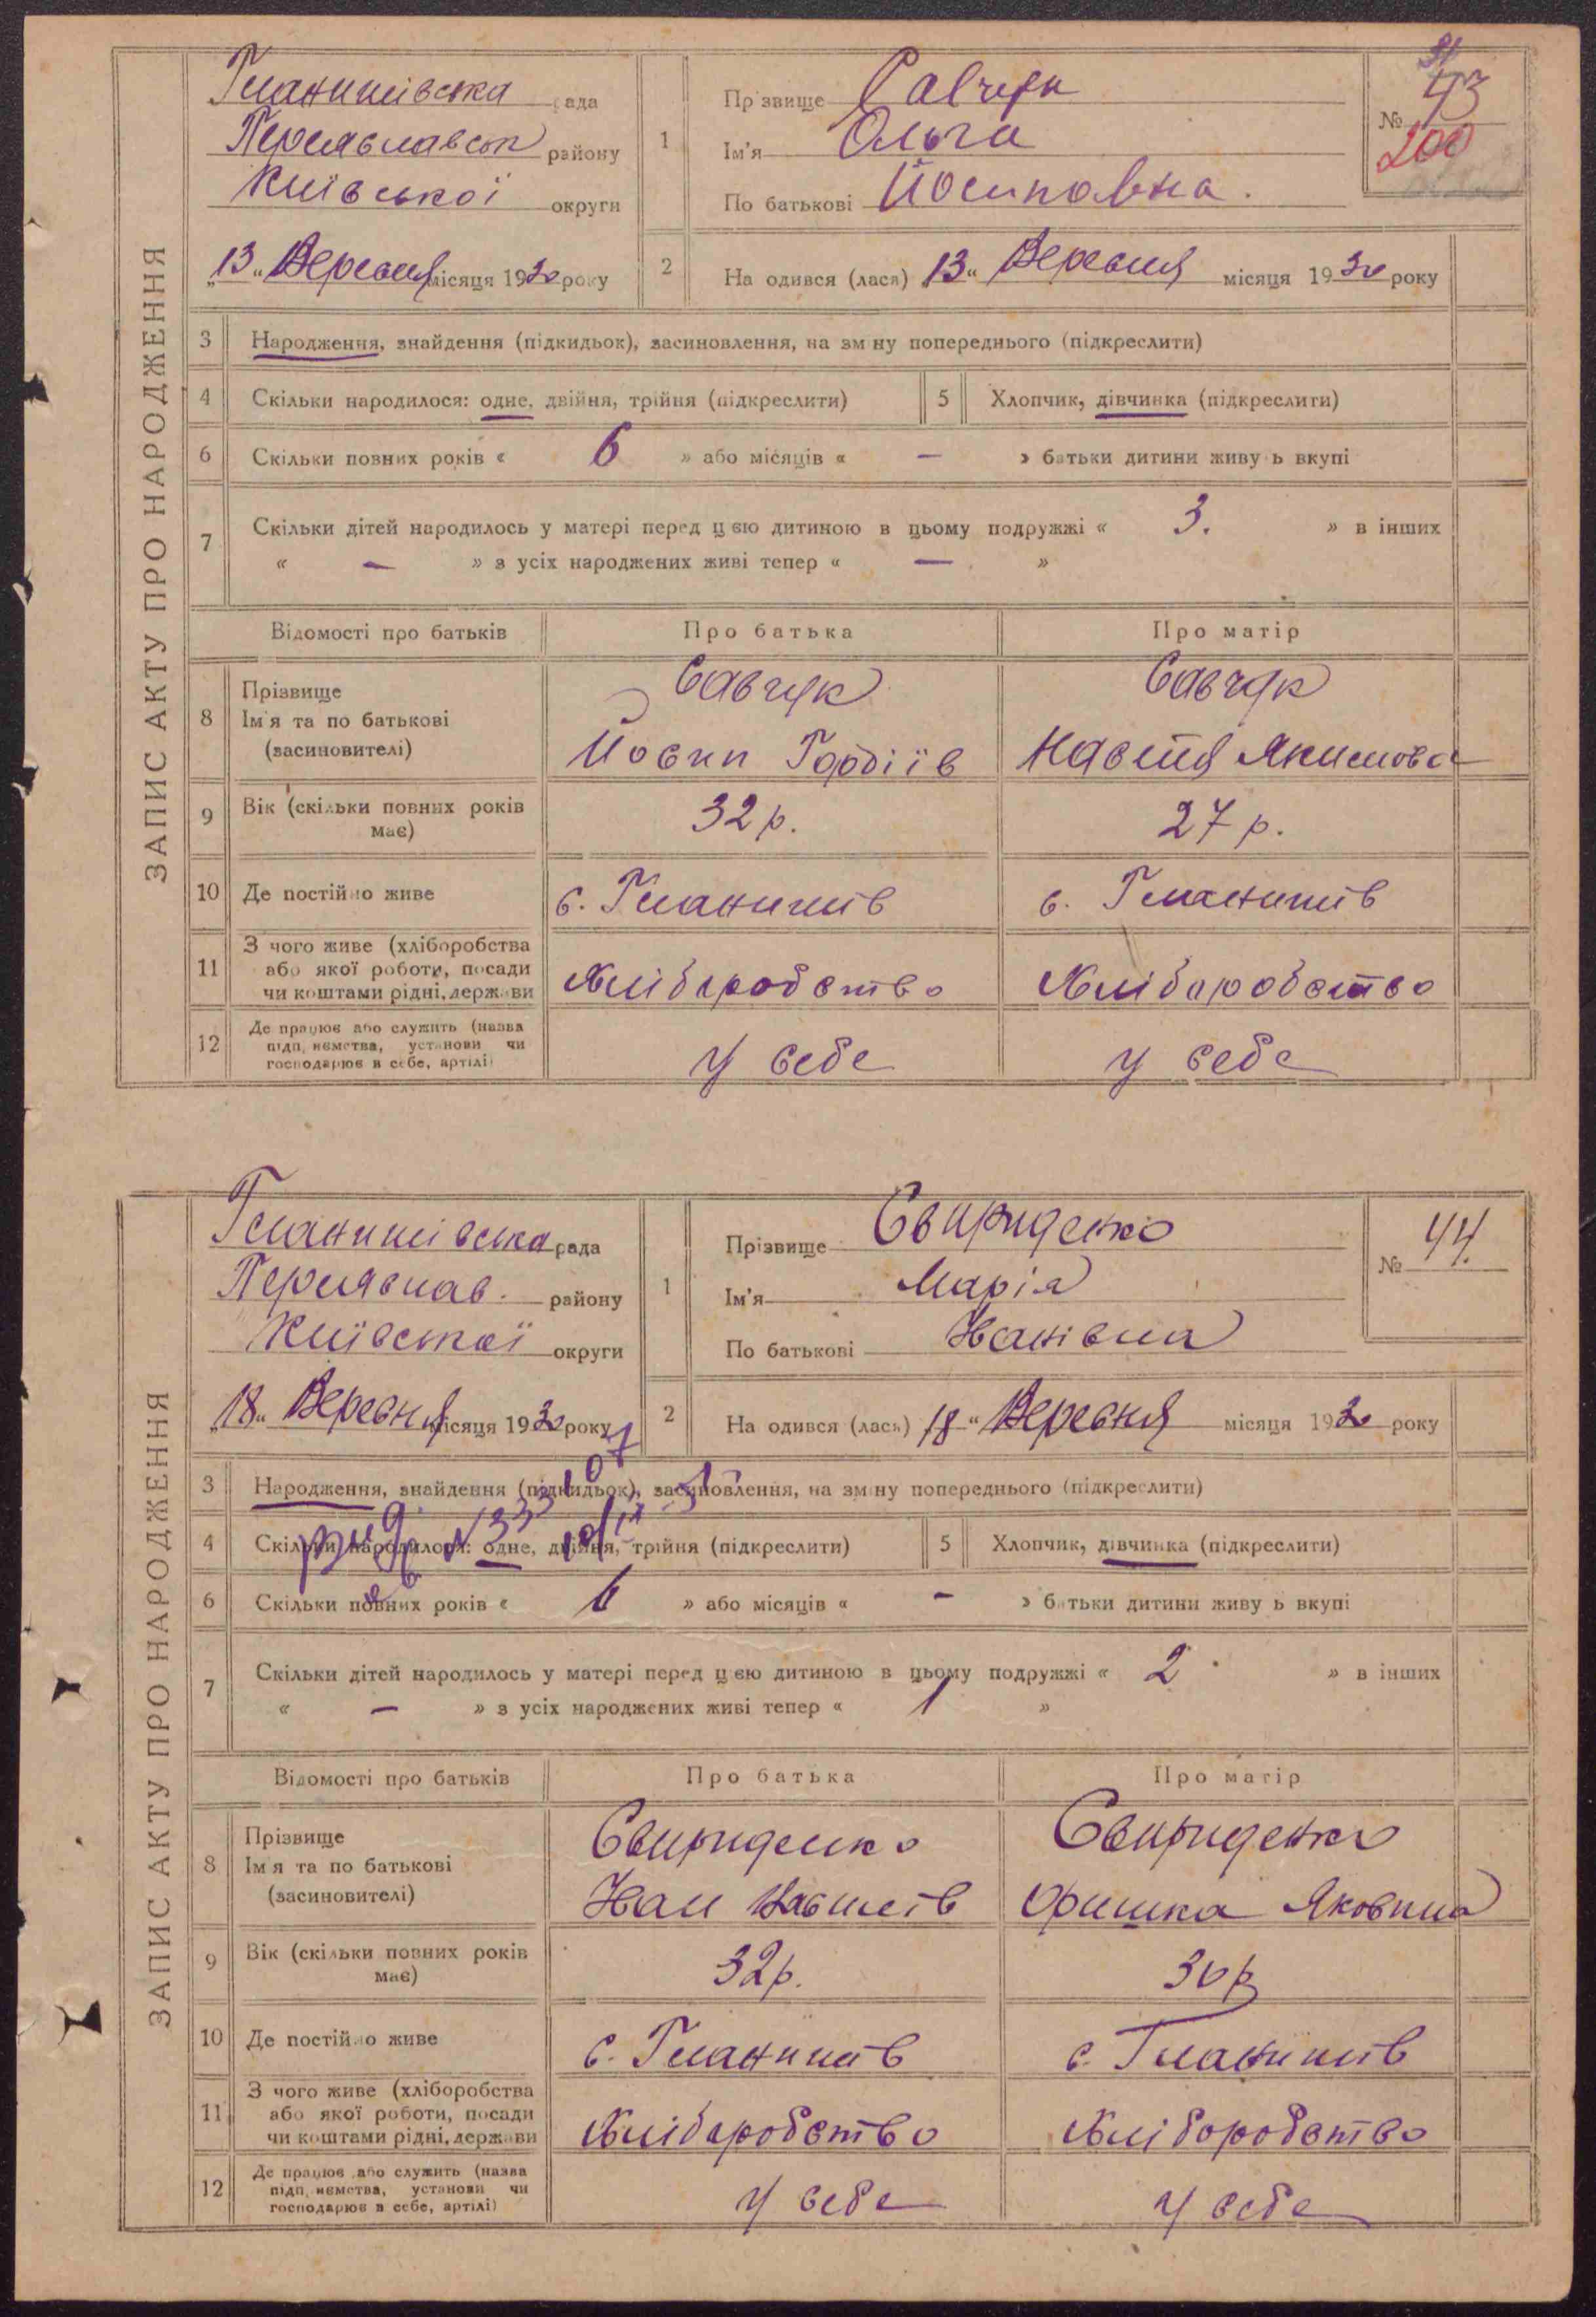 ЗАПИС АКТУ ПРО НАРОДЖЕННЯ
Гланишівська рада
Переяславськ району
Київської округи
„13“ Вересня місяця 1930 року
1 Прізвище Савчук
Ім'я Ольга
По батькові Йосиповна.
№ 43
200
2 На одився (лася) 13 “ Вересня місяця 1930 року
3 Народження, знайдення (підкидьок), засиновлення, на зміну попереднього (підкреслити)
4 Скільки народилося: одне, двійня, трійня (підкреслити) 5 Хлопчик, дівчинка (підкреслити)
6 Скільки повних років « 6 » або місяців « — » батьки дитини живуть вкупі
7 Скільки дітей народилось у матері перед цією дитиною в цьому подружжі « 3. » в інших
« — » з усіх народжених живі тепер « — »
Відомості про батьків Про батька Про матір
8 Прізвище Ім'я та по батькові (засиновителі) Савчук Савчук
Йосип Гордіїв Настя Якимова
9 Вік (скільки повних років має) 32 р. 27 р.
10 Де постійно живе с. Гланишів с. Гланишів
11 З чого живе (хліборобства або якої роботи, посади чи коштами рідні, держави Хліборобство Хліборобство
12 Де працює або служить (назва підприємства, установи чи господарює в себе, артілі) У себе У себе
ЗАПИС АКТУ ПРО НАРОДЖЕННЯ
Гланишівська рада
Переяслав. району
Київської округи
„18“ Вересня місяця 1930 року
1 Прізвище Свириденко
Ім'я Марія
По батькові Іванівна
№ 44.
2 На одився (лась) 18 “ Вересня місяця 1930 року
3 Народження, знайдення (підкидьок), засиновлення, на зміну попереднього (підкреслити)
4 Скільки народилося: одне, двійня, трійня (підкреслити) 5 Хлопчик, дівчинка (підкреслити)
6 Скільки повних років « 6 » або місяців « — » батьки дитини живуть вкупі
7 Скільки дітей народилось у матері перед цією дитиною в цьому подружжі « 2 » в інших
« — » з усіх народжених живі тепер « 1 »
Відомості про батьків Про батька Про матір
8 Прізвище Ім'я та по батькові (засиновителі) Свириденко Свириденко
Іван Оришка Яковина
9 Вік (скільки повних років має) 32 р. 30 р
10 Де постійно живе с. Гланишів с. Гланишів
11 З чого живе (хліборобства або якої роботи, посади чи коштами рідні, держави Хліборобство Хліборобство
12 Де працює або служить (назва підприємства, установи чи господарює в себе, артілі) У себе У себе